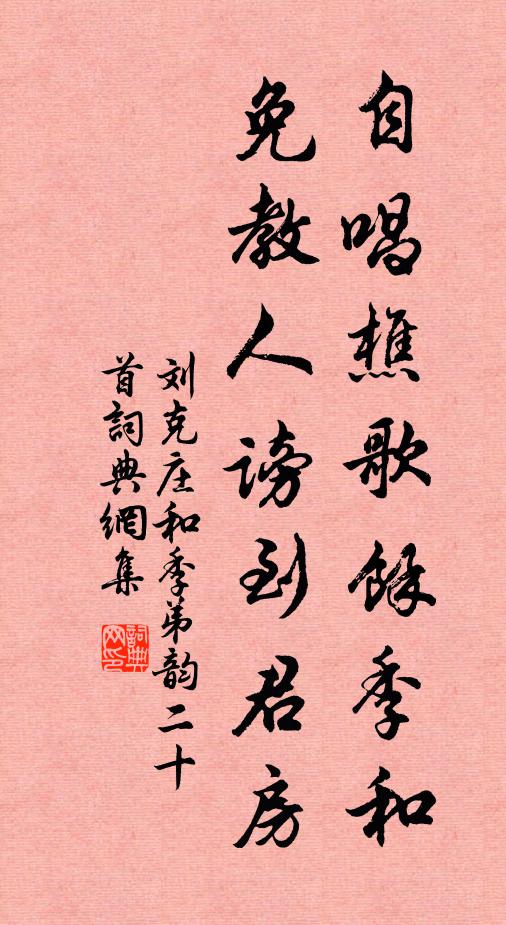 自唱樵歌餘季和
免教人謗到君房
刘克庄和季弟韵二十
首詞典網集
詞典网印